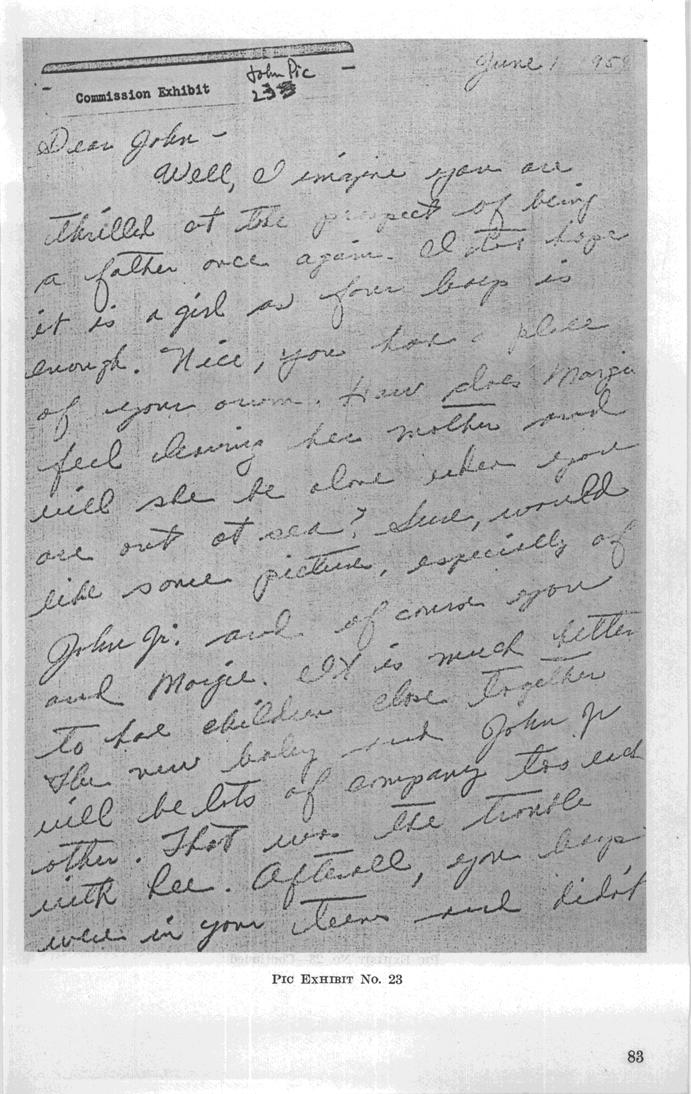 John Pic
Commission Exhibit 23
June 1 195
Dear John -
Well, I imagine you are
thrilled at the prospect of being
a father once again. I too hope
it is a girl as four boys is
enough. Nice, you have a place
of your own. How does Margie
feel leaving her mother and
will she be alone when you
are out at sea? Sure, would
like some picture, especially of
John Jr. and of course you
and Margie. It is much better
to have children close together
The new baby and John Jr
will be lots of company to each
other. That was the trouble
with Lee. Afterall, you boys
were in your teens and didn't
PIC EXHIBIT NO. 23
83